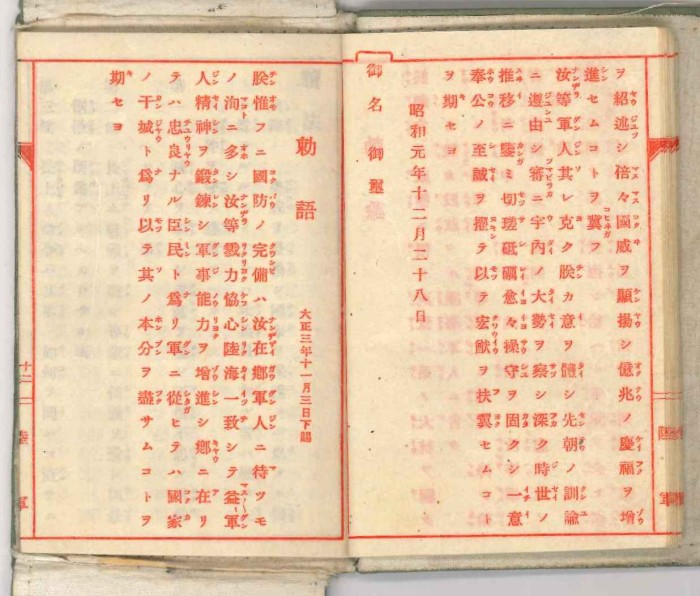 ヲ紹述シ倍々國威ヲ顯揚シ億兆ノ慶福ヲ增
進セムコトヲ冀フ
汝等軍人其レ克ク朕カ意ヲ體シ先朝ノ訓諭
ニ遵由シ審ニ宇內ノ大勢ヲ察シ深ク時世ノ
推移ニ鑒ミ切瑳砥礪愈々操守ヲ固クシ一意
奉公ノ至誠ヲ擢テ以テ宏猷ヲ扶翼セムコト
ヲ期セヨ
昭和元年十二月二十八日
御名御璽
勅語
大正三年十一月三日下賜
朕惟フニ國防ノ完備ハ汝在鄕軍人ニ待ツモ
ノ洵ニ多シ汝等戮力協心陸海一致シテ益〻軍
人精神ヲ鍛鍊シ軍事能力ヲ增進シ鄕ニ在リ
テハ忠良ナル臣民ト爲リ軍ニ從ヒテハ國家
ノ干城ト爲リ以テ其ノ本分ヲ盡サムコトヲ
期セヨ
十二
陸軍